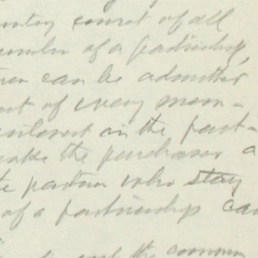 consent of all
number of a partnership,
can be admitted
out of every mem-
interest in the part-
make the purchaser a
partner who stay
of a partnership can
and the common